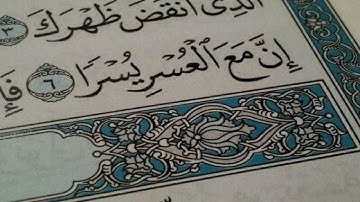 الَّذِى أَنقَضَ ظَهْرَكَ ٣
إِنَّ مَعَ الْعُسْرِ يُسْرًا ٦